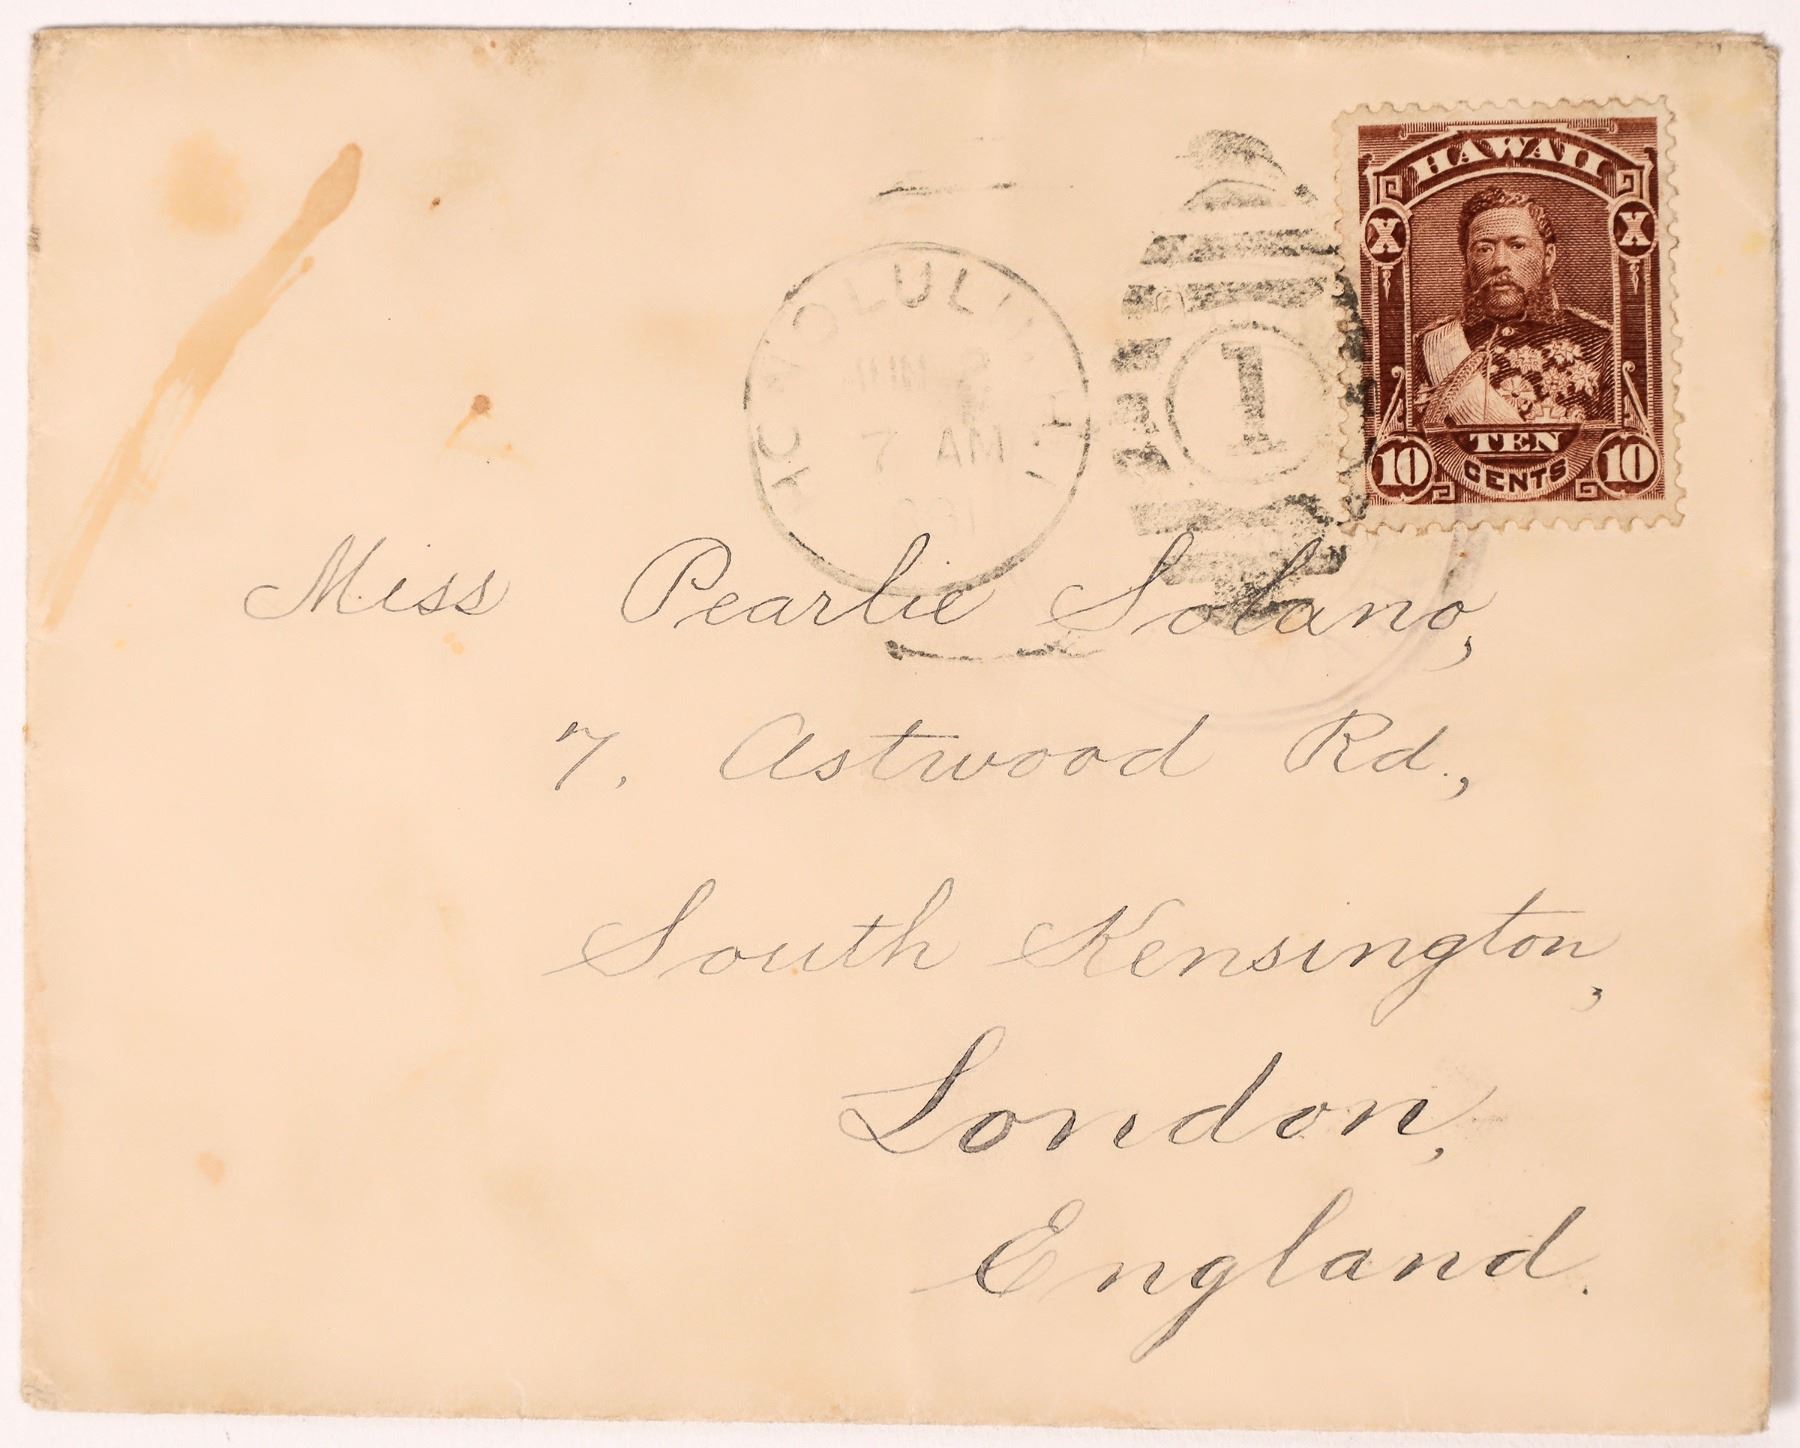 HAWAII
X X
TEN
CENTS
10 10
HONOLULU
7 AM
1
Miss Pearlie Solano,
7. Astwood Rd.,
South Kensington,
London,
England.